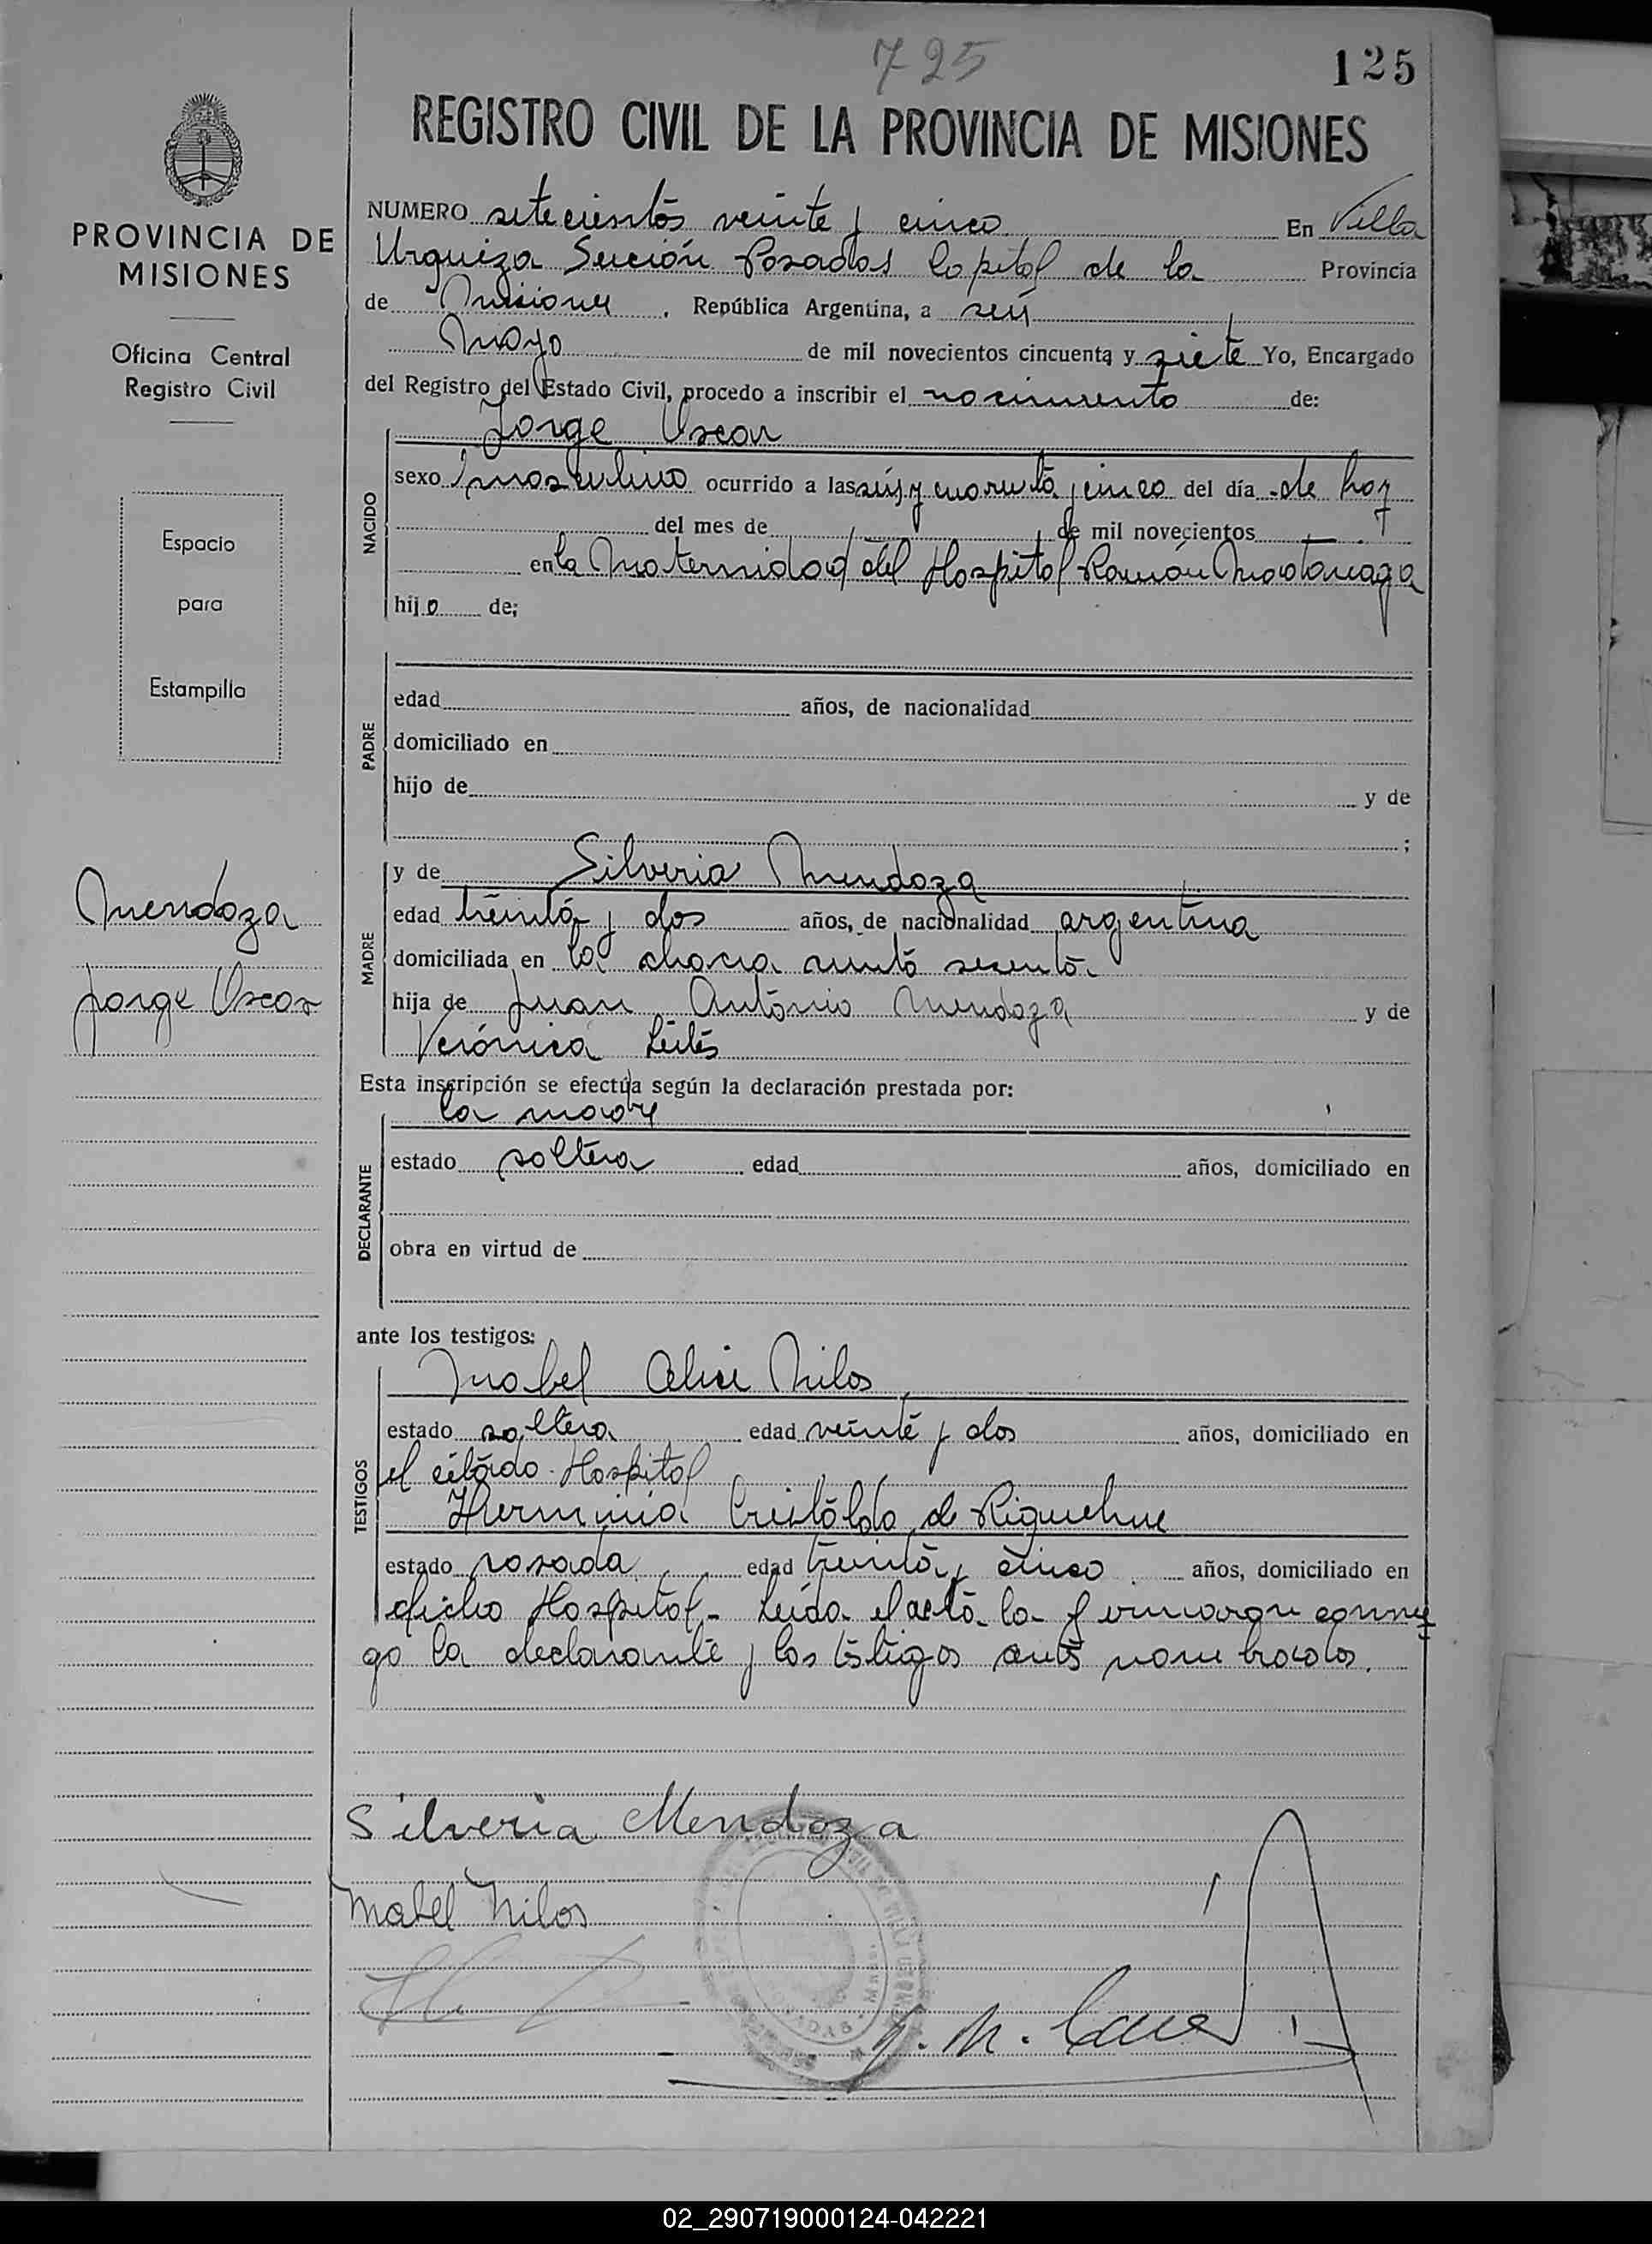 725
125
REGISTRO CIVIL DE LA PROVINCIA DE MISIONES
PROVINCIA DE
MISIONES
Oficina Central
Registro Civil
Espacio
para
Estampilla
Mendoza
Jorge Oscar
NUMERO setecientos veinte y cinco En Villa
Urquiza Sección Posadas Capital de la Provincia
de Misiones, República Argentina, a seis
Mayo de mil novecientos cincuenta y siete Yo, Encargado
del Registro del Estado Civil, procedo a inscribir el nacimiento de:
Jorge Oscar
NACIDO
sexo masculino ocurrido a las seis y cuarenta y cinco del día de hoy
del mes de de mil novecientos
en la Maternidad del Hospital Ramón Madariaga
hijo de;
PADRE
edad años, de nacionalidad
domiciliado en
hijo de y de
;
MADRE
y de Silveria Mendoza
edad treinta y dos años, de nacionalidad argentina
domiciliada en la chacra ciento sesenta
hija de Juan Antonio Mendoza y de
Verónica Leites
Esta inscripción se efectúa según la declaración prestada por:
la madre
DECLARANTE
estado soltera edad años, domiciliado en
obra en virtud de
ante los testigos:
TESTIGOS
Mabel Alice Milos
estado soltera edad veinte y dos años, domiciliado en
el citado Hospital
Herminia Cristaldo de Riquelme
estado casada edad treinta y cinco años, domiciliado en
dicho Hospital - Leída el acta la firmaron conmi
go la declarante y los testigos antes nombrados.
Silveria Mendoza
Mabel Milos
02_290719000124-042221